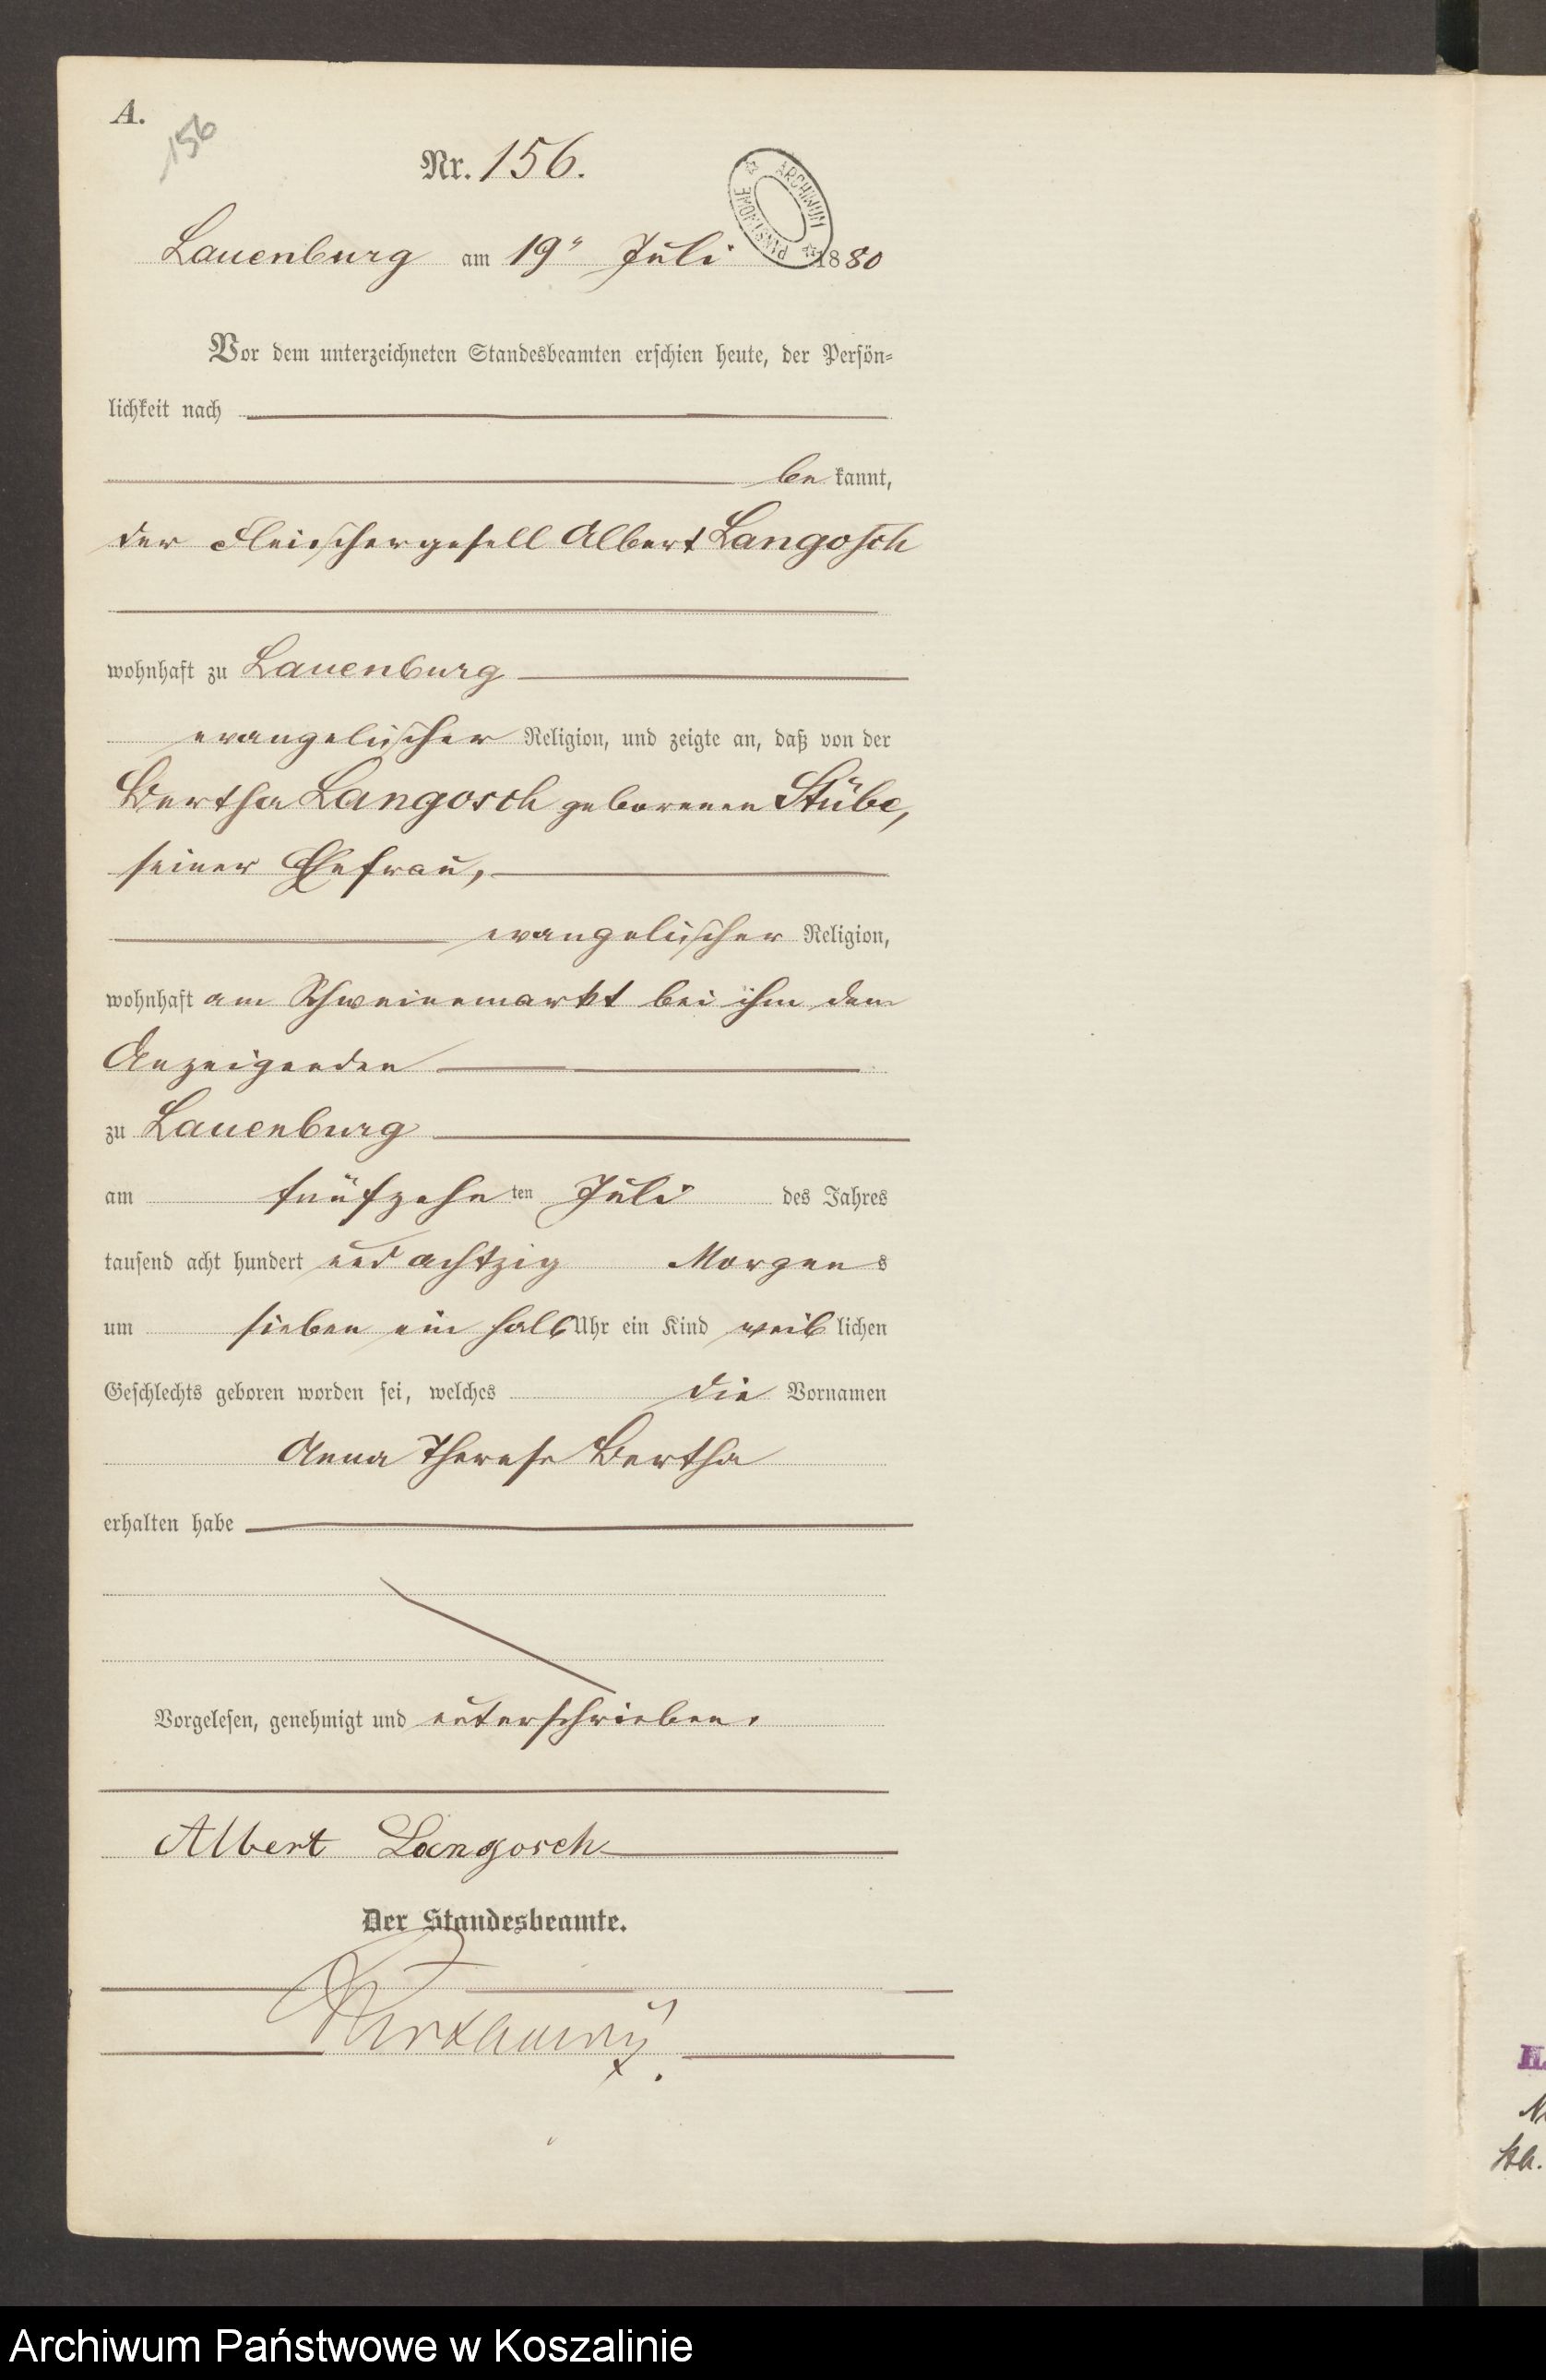 A.
156
Nr. 156.
ARCHIWUM PAŃSTWOWE
Lauenburg am 19ᵗ Juli 1880
Vor dem unterzeichneten Standesbeamten erschien heute, der Persön-
lichkeit nach
be kannt,
der Fleischergesell Albert Langosch
wohnhaft zu Lauenburg
evangelischer Religion, und zeigte an, daß von der
Bertha Langosch geborenen Stübe,
seiner Ehefrau,
evangelischer Religion,
wohnhaft am Schweinemarkt bei ihm dem
Anzeigenden
zu Lauenburg
am fünfzehn ten Juli des Jahres
tausend acht hundert und achtzig Morgens
um sieben ein halb Uhr ein Kind weib lichen
Geschlechts geboren worden sei, welches die Vornamen
Anna Therese Bertha
erhalten habe
Vorgelesen, genehmigt und unterschrieben.
Albert Langosch
Der Standesbeamte.
Archiwum Państwowe w Koszalinie